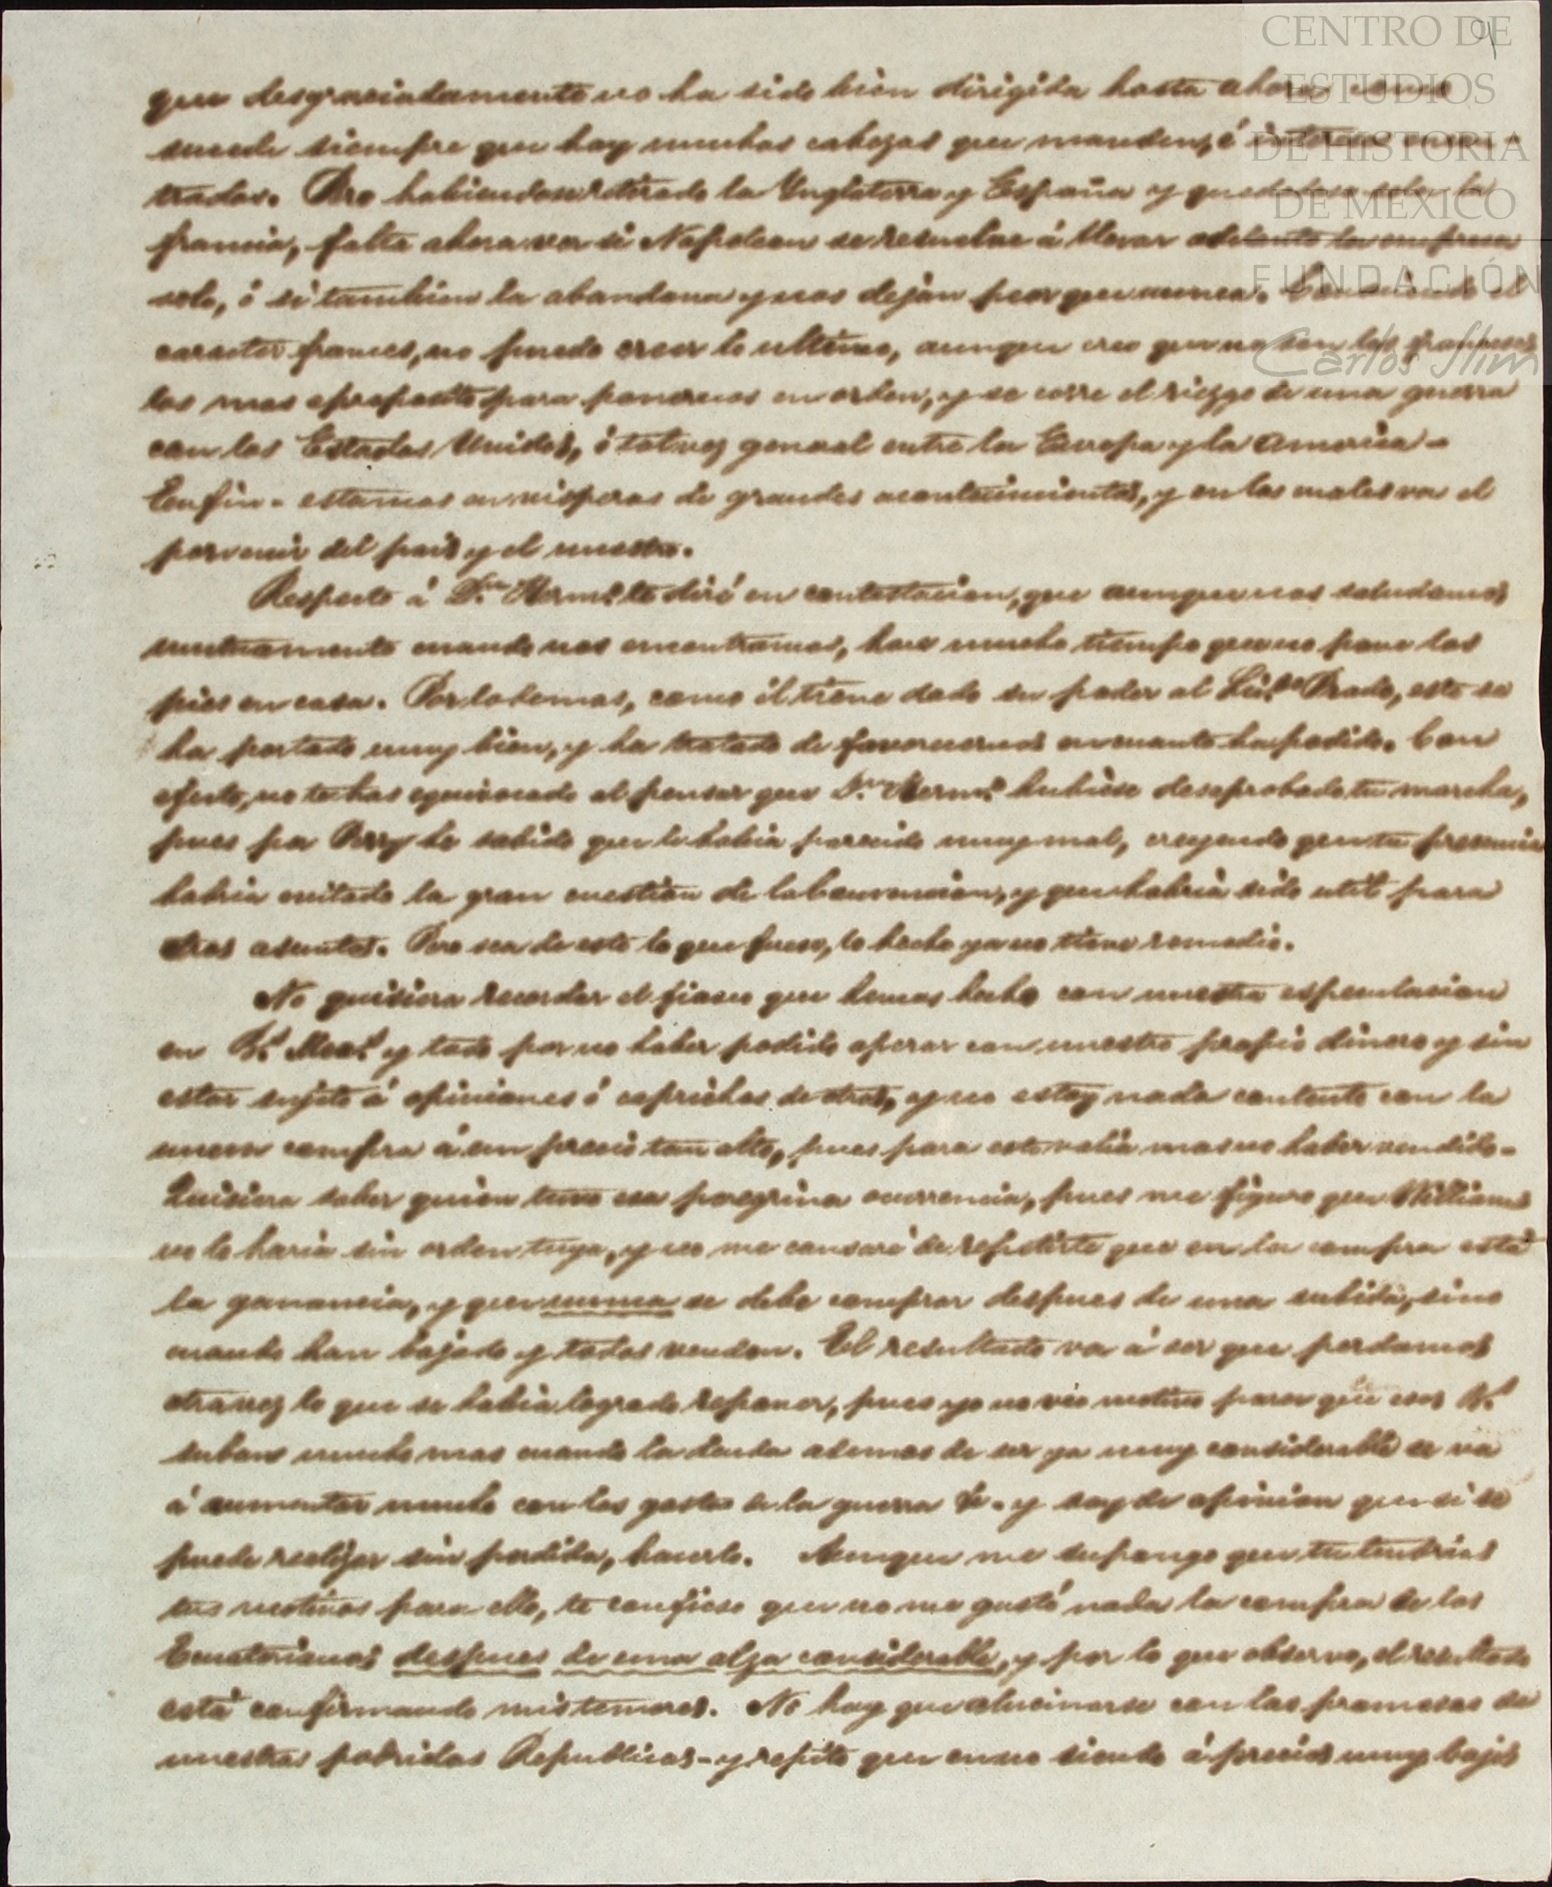 CENTRO DE
ESTUDIOS
DE HISTORIA
DE MEXICO
FUNDACIÓN
Carlos Slim
que desgraciadamente no ha sido bien dirigida hasta ahora como
sucede siempre que hay muchas cabezas que manden, é
trados. Pero habiendose retirado la Ynglaterra y España y quedadose sola la
francia, falta ahora ver si Napoleon se resuelve á llevar adelante la empresa
solo, ó si tambien la abandona y nos dejan peor que nunca. Conociendo el
caracter frances, no puedo creer lo ultimo, aunque creo que no son los franceses
los mas aproposito para ponernos en orden, y se corre el riezgo de una guerra
con los Estados Unidos, ó talvez general entre la Europa y la America -
Enfin - estamos en visperas de grandes acontecimientos, y en los cuales va el
porvenir del pais y el nuestro.
Respecto á Dn. Herm.o te diré en contestacion, que aunque nos saludamos
mutuamente cuando nos encontramos, hace mucho tiempo que no pone los
pies en casa. Por lo demas, como él tiene dado su poder al Lic.do Prado, este se
ha portado muy bien, y ha tratado de favorecernos en cuanto ha podido. Con
efecto, no te has equivocado al pensar que Dn. Herm.o hubiese desaprobado tu marcha,
pues por Perry he sabido que le habia parecido muy mal, creyendo que tu presencia
habria evitado la gran cuestion de la Convencion, y que habria sido util para
otros asuntos. Pero sea de esto lo que fuese, lo hecho ya no tiene remedio.
No quisiera recordar el fiasco que hemos hecho con nuestra especulacion
en B.s Mex.s y todo por no haber podido operar con nuestro propio dinero y sin
estar sujeto á opiniones ó caprichos de otros, y no estoy nada contento con la
nueva compra á un precio tan alto, pues para esto valia mas no haber vendido -
Quisiera saber quien tuvo esa peregrina ocurrencia, pues me figuro que Williams
no lo haria sin orden tuya, y no me cansaré de repetirte que en la compra está
la ganancia, y que nunca se debe comprar despues de una subida, sino
cuando han bajado y todos venden. El resultado va á ser que perdamos
otravez lo que se habia logrado reponer, pues yo no veo motivo para que esos B.s
suban mucho mas cuando la deuda ademas de ser ya muy considerable se va
á aumentar mucho con los gastos de la guerra &. y soy de opinion que si se
puede realizar sin perdida, hacerlo. Aunque me supongo que tu tendrias
tus motivos para ello, te confieso que no me gustó nada la compra de los
Ecuatorianos despues de una alza considerable, y por lo que observo, el resultado
está confirmando mis temores. No hay que alucinarse con las promesas de
nuestras podridas Republicas - y repito que en no siendo á precios muy bajos